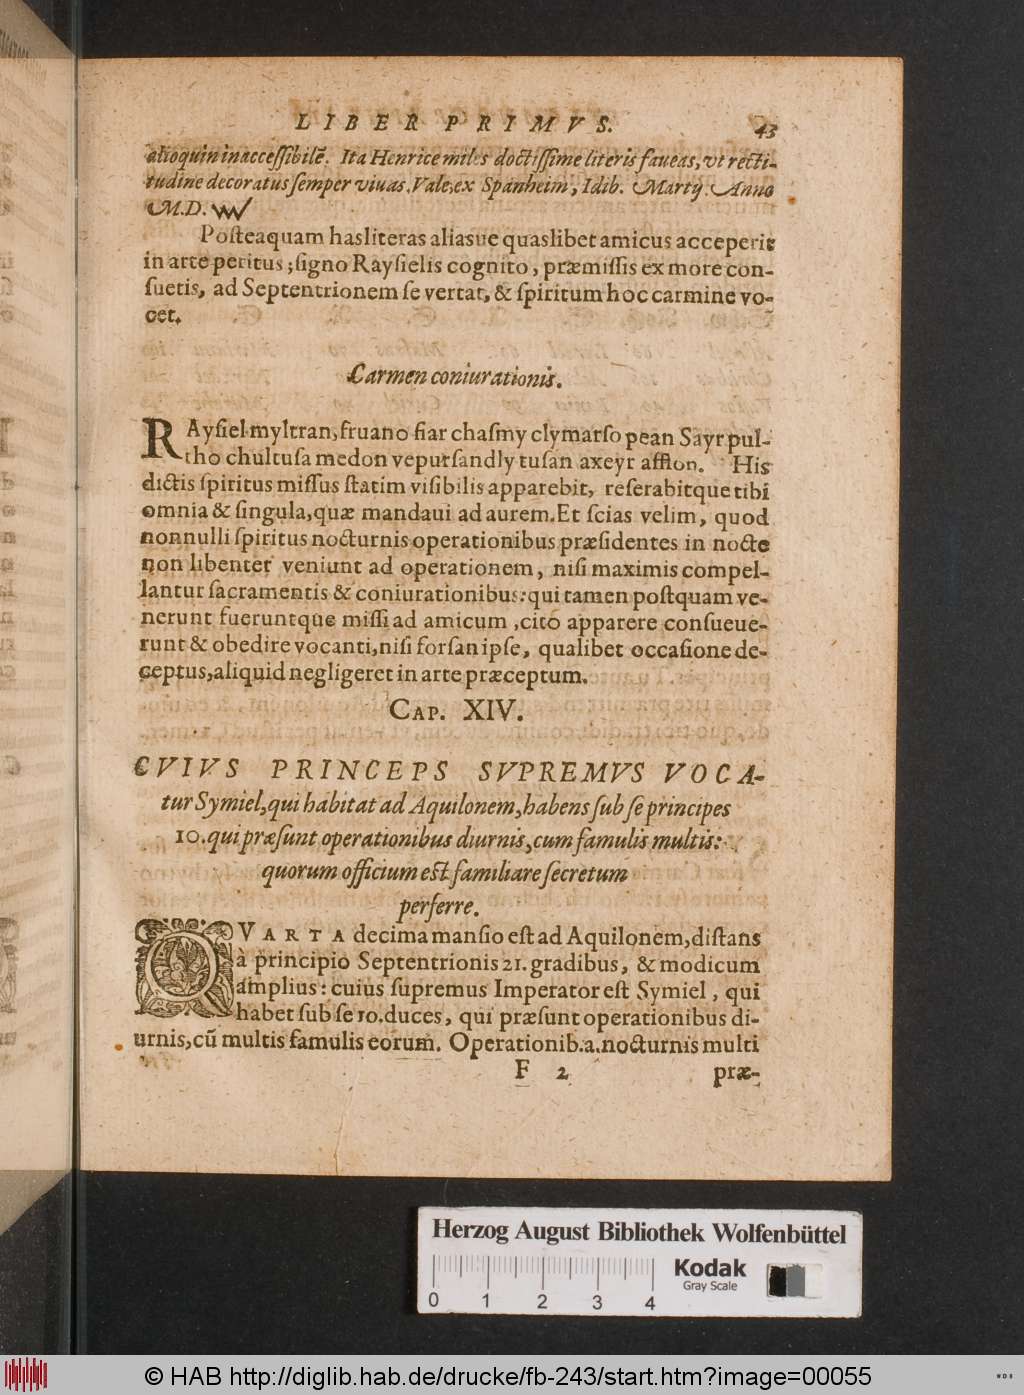 LIBER PRIMVS. 43
alioquin inaccessibilē. Ita Henrice miles doctissime literis faueas, vt recti-
tudine decoratus semper viuas. Vale, ex Spanheim, Idib. Martij. Anno
M.D.
Posteaquam has literas aliasue quaslibet amicus acceperit
in arte peritus; signo Raysielis cognito, præmissis ex more con-
suetis, ad Septentrionem se vertat, & spiritum hoc carmine vo-
cet.
Carmen coniurationis.
RAysiel myltran, fruano fiar chasmy clymarso pean Sayr pul-
tho chultusa medon vepursandly tusan axeyr afflon. His
dictis spiritus missus statim visibilis apparebit, referabitque tibi
omnia & singula, quæ mandaui ad aurem. Et scias velim, quod
nonnulli spiritus nocturnis operationibus præsidentes in nocte
non libenter veniunt ad operationem, nisi maximis compel-
lantur sacramentis & coniurationibus: qui tamen postquam ve-
nerunt fueruntque missi ad amicum, cito apparere consueue-
runt & obedire vocanti, nisi forsan ipse, qualibet occasione de-
ceptus, aliquid negligeret in arte præceptum.
CAP. XIV.
CVIVS PRINCEPS SVPREMVS VOCA-
tur Symiel, qui habitat ad Aquilonem, habens sub se principes
10. qui præsunt operationibus diurnis, cum famulis multis:
quorum officium est familiare secretum
perferre.
QVARTA decima mansio est ad Aquilonem, distans
à principio Septentrionis 21. gradibus, & modicum
amplius: cuius supremus Imperator est Symiel, qui
habet sub se 10. duces, qui præsunt operationibus di-
urnis, cū multis famulis eorum. Operationib. a. nocturnis multi
F 2 præ-
Herzog August Bibliothek Wolfenbüttel
Kodak
Gray Scale
0 1 2 3 4
© HAB http://diglib.hab.de/drucke/fb-243/start.htm?image=00055